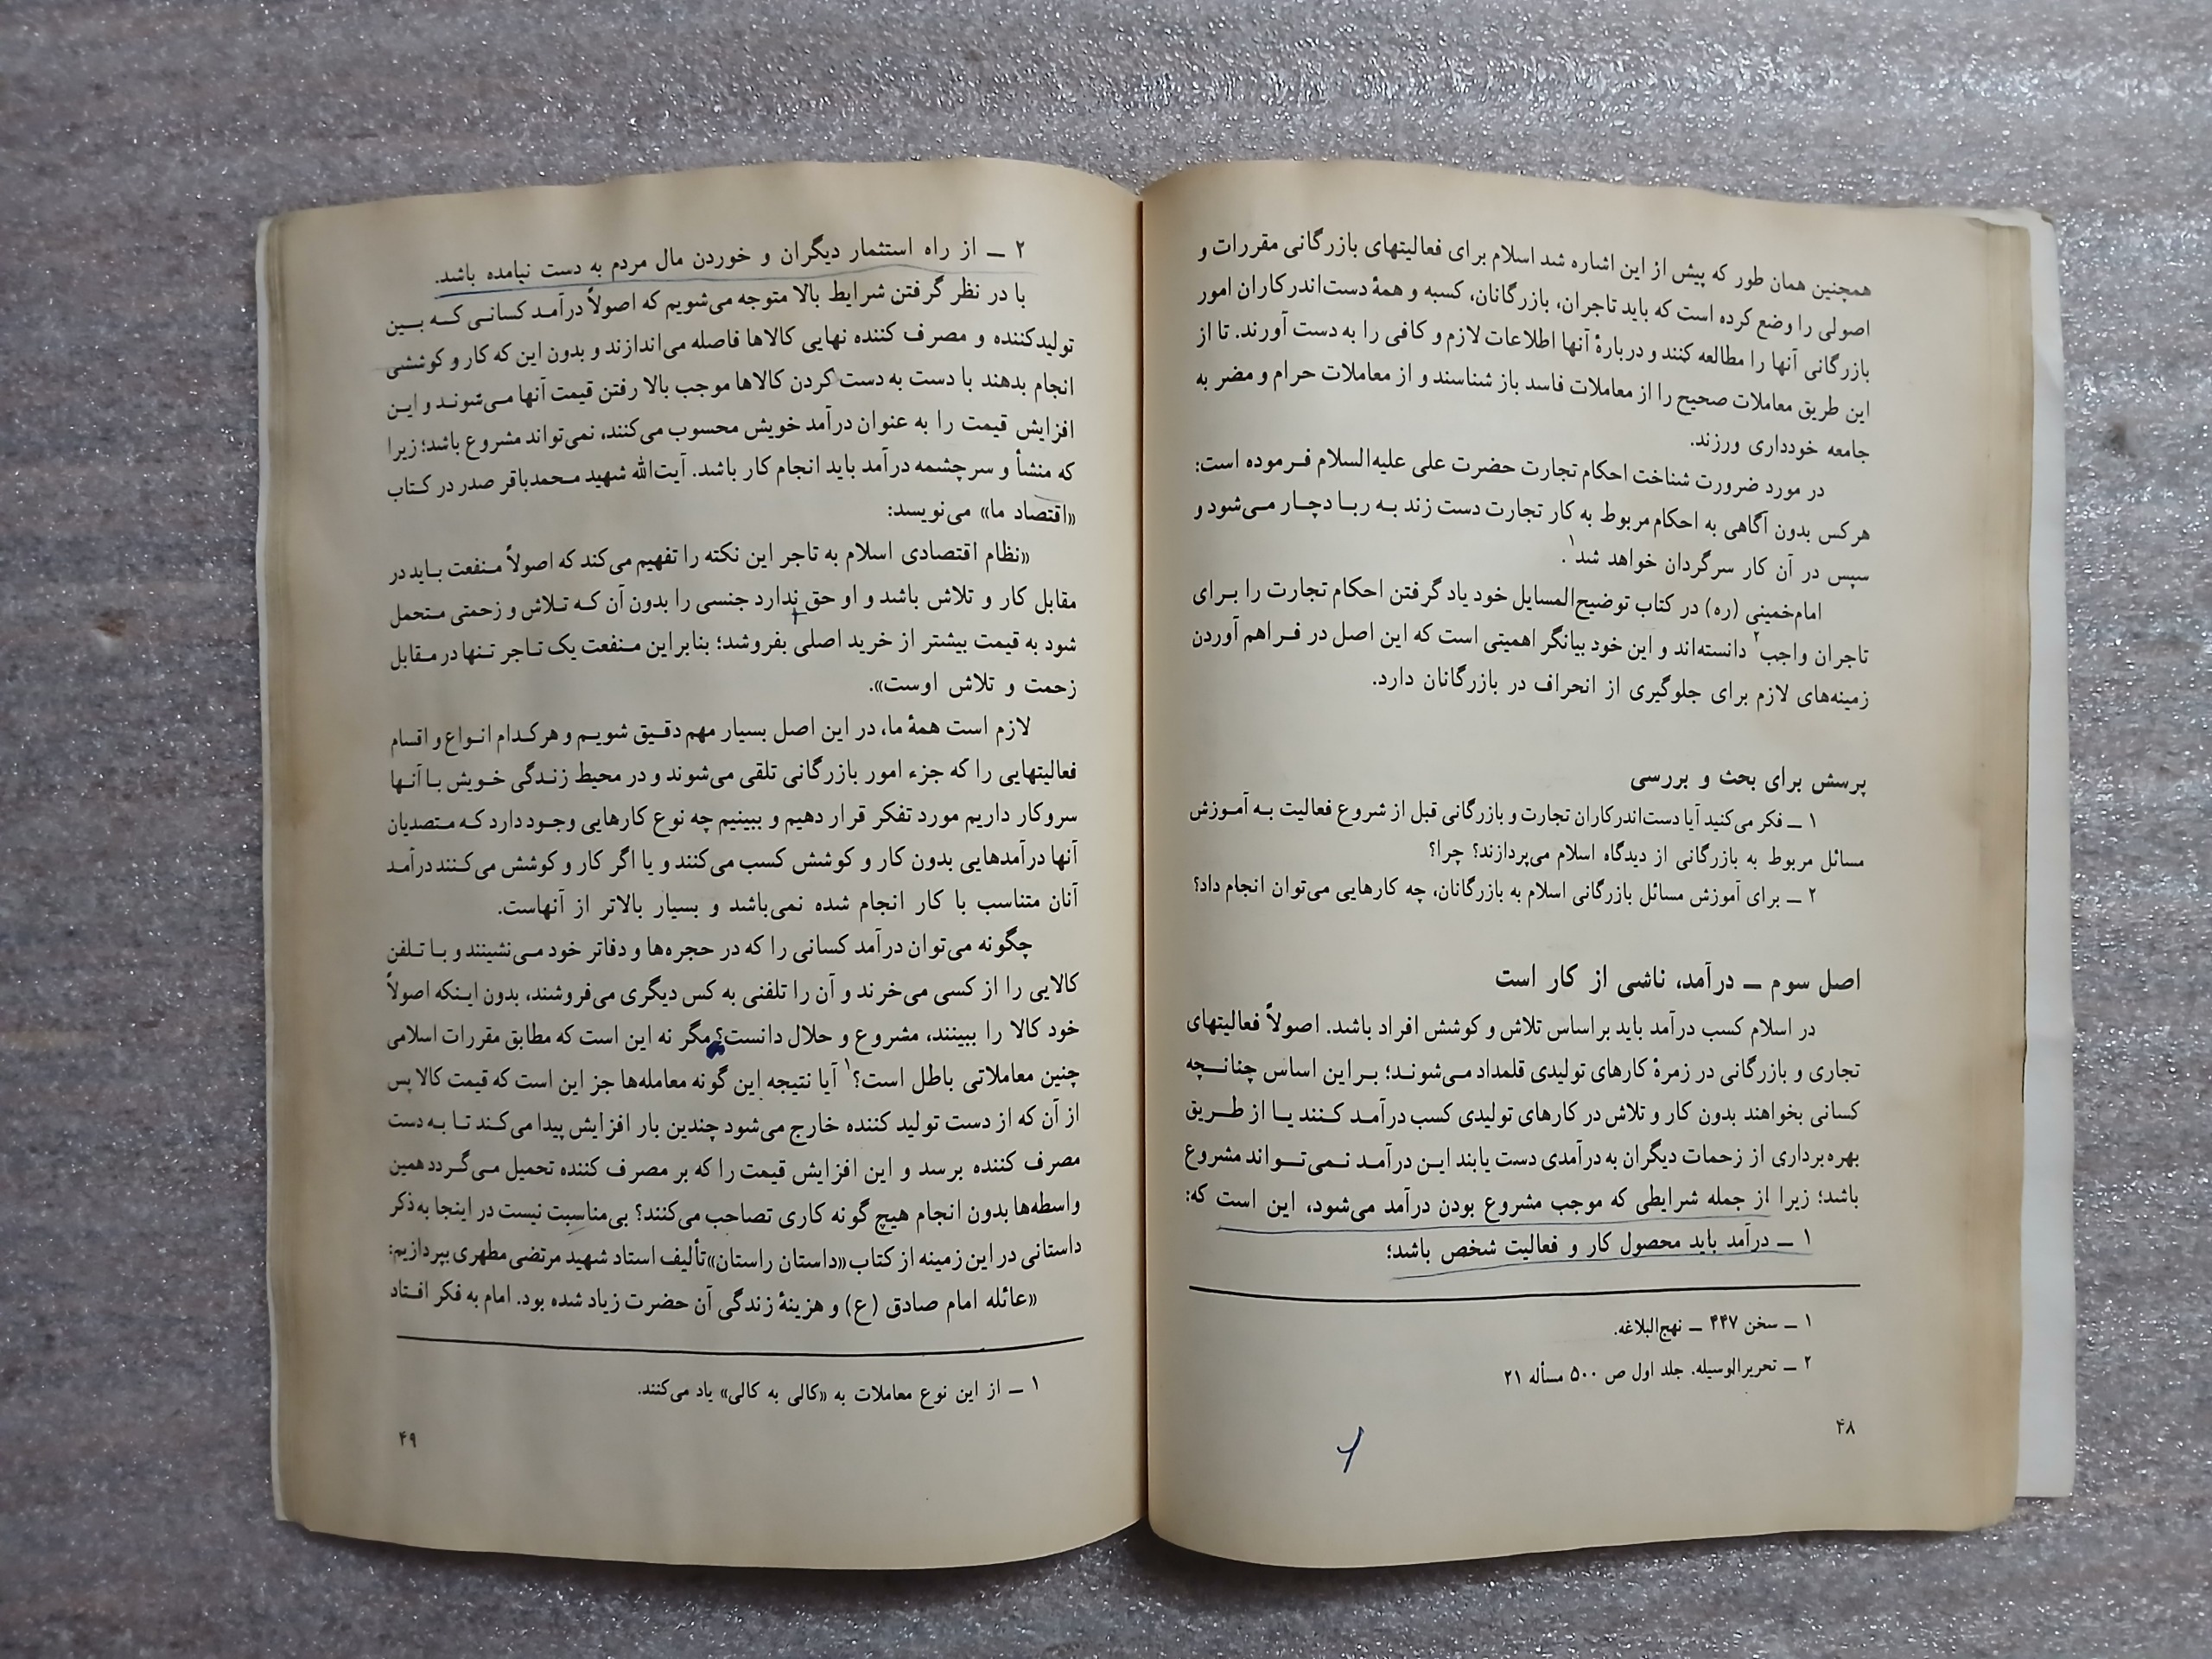 همچنین همان طور که پیش از این اشاره شد اسلام برای فعالیتهای بازرگانی مقررات و
اصولی را وضع کرده است که باید تاجران، بازرگانان، کسبه و همهٔ دست‌اندرکاران امور
بازرگانی آنها را مطالعه کنند و دربارهٔ آنها اطلاعات لازم و کافی را به دست آورند. تا از
این طریق معاملات صحیح را از معاملات فاسد باز شناسند و از معاملات حرام و مضر به
جامعه خودداری ورزند.
در مورد ضرورت شناخت احکام تجارت حضرت علی علیه‌السلام فرموده است:
هرکس بدون آگاهی به احکام مربوط به کار تجارت دست زند به ربا دچار می‌شود و
سپس در آن کار سرگردان خواهد شد۱.
امام‌خمینی (ره) در کتاب توضیح‌المسایل خود یاد گرفتن احکام تجارت را برای
تاجران واجب۲ دانسته‌اند و این خود بیانگر اهمیتی است که این اصل در فراهم آوردن
زمینه‌های لازم برای جلوگیری از انحراف در بازرگانان دارد.
پرسش برای بحث و بررسی
۱ – فکر می‌کنید آیا دست‌اندرکاران تجارت و بازرگانی قبل از شروع فعالیت به آموزش
مسائل مربوط به بازرگانی از دیدگاه اسلام می‌پردازند؟ چرا؟
۲ – برای آموزش مسائل بازرگانی اسلام به بازرگانان، چه کارهایی می‌توان انجام داد؟
اصل سوم – درآمد، ناشی از کار است
در اسلام کسب درآمد باید براساس تلاش و کوشش افراد باشد. اصولاً فعالیتهای
تجاری و بازرگانی در زمرهٔ کارهای تولیدی قلمداد می‌شوند؛ براین اساس چنانچه
کسانی بخواهند بدون کار و تلاش در کارهای تولیدی کسب درآمد کنند یا از طریق
بهره‌برداری از زحمات دیگران به درآمدی دست یابند این درآمد نمی‌تواند مشروع
باشد؛ زیرا از جمله شرایطی که موجب مشروع بودن درآمد می‌شود، این است که:
۱ – درآمد باید محصول کار و فعالیت شخص باشد؛
۱ – سخن ۴۴۷ – نهج‌البلاغه.
۲ – تحریرالوسیله. جلد اول ص ۵۰۰ مسأله ۲۱
۴۸
۲ – از راه استثمار دیگران و خوردن مال مردم به دست نیامده باشد.
با در نظر گرفتن شرایط بالا متوجه می‌شویم که اصولاً درآمد کسانی که بین
تولیدکننده و مصرف کننده نهایی کالاها فاصله می‌اندازند و بدون این که کار و کوششی
انجام بدهند با دست به دست کردن کالاها موجب بالا رفتن قیمت آنها می‌شوند و این
افزایش قیمت را به عنوان درآمد خویش محسوب می‌کنند، نمی‌تواند مشروع باشد؛ زیرا
که منشأ و سرچشمه درآمد باید انجام کار باشد. آیت‌الله شهید محمدباقر صدر در کتاب
«اقتصاد ما» می‌نویسد:
«نظام اقتصادی اسلام به تاجر این نکته را تفهیم می‌کند که اصولاً منفعت باید در
مقابل کار و تلاش باشد و او حق ندارد جنسی را بدون آن که تلاش و زحمتی متحمل
شود به قیمت بیشتر از خرید اصلی بفروشد؛ بنابراین منفعت یک تاجر تنها در مقابل
زحمت و تلاش اوست».
لازم است همهٔ ما، در این اصل بسیار مهم دقیق شویم و هرکدام انواع و اقسام
فعالیتهایی را که جزء امور بازرگانی تلقی می‌شوند و در محیط زندگی خویش با آنها
سروکار داریم مورد تفکر قرار دهیم و ببینیم چه نوع کارهایی وجود دارد که متصدیان
آنها درآمدهایی بدون کار و کوشش کسب می‌کنند و یا اگر کار و کوشش می‌کنند درآمد
آنان متناسب با کار انجام شده نمی‌باشد و بسیار بالاتر از آنهاست.
چگونه می‌توان درآمد کسانی را که در حجره‌ها و دفاتر خود می‌نشینند و با تلفن
کالایی را از کسی می‌خرند و آن را تلفنی به کس دیگری می‌فروشند، بدون اینکه اصولاً
خود کالا را ببینند، مشروع و حلال دانست؟ مگر نه این است که مطابق مقررات اسلامی
چنین معاملاتی باطل است؟۱ آیا نتیجه این گونه معامله‌ها جز این است که قیمت کالا پس
از آن که از دست تولید کننده خارج می‌شود چندین بار افزایش پیدا می‌کند تا به دست
مصرف کننده برسد و این افزایش قیمت را که بر مصرف کننده تحمیل می‌گردد همین
واسطه‌ها بدون انجام هیچ گونه کاری تصاحب می‌کنند؟ بی‌مناسبت نیست در اینجا به ذکر
داستانی در این زمینه از کتاب «داستان راستان» تألیف استاد شهید مرتضی مطهری بپردازیم:
«عائله امام صادق (ع) و هزینهٔ زندگی آن حضرت زیاد شده بود. امام به فکر افتاد
۱ – از این نوع معاملات به «کالی به کالی» یاد می‌کنند.
۴۹